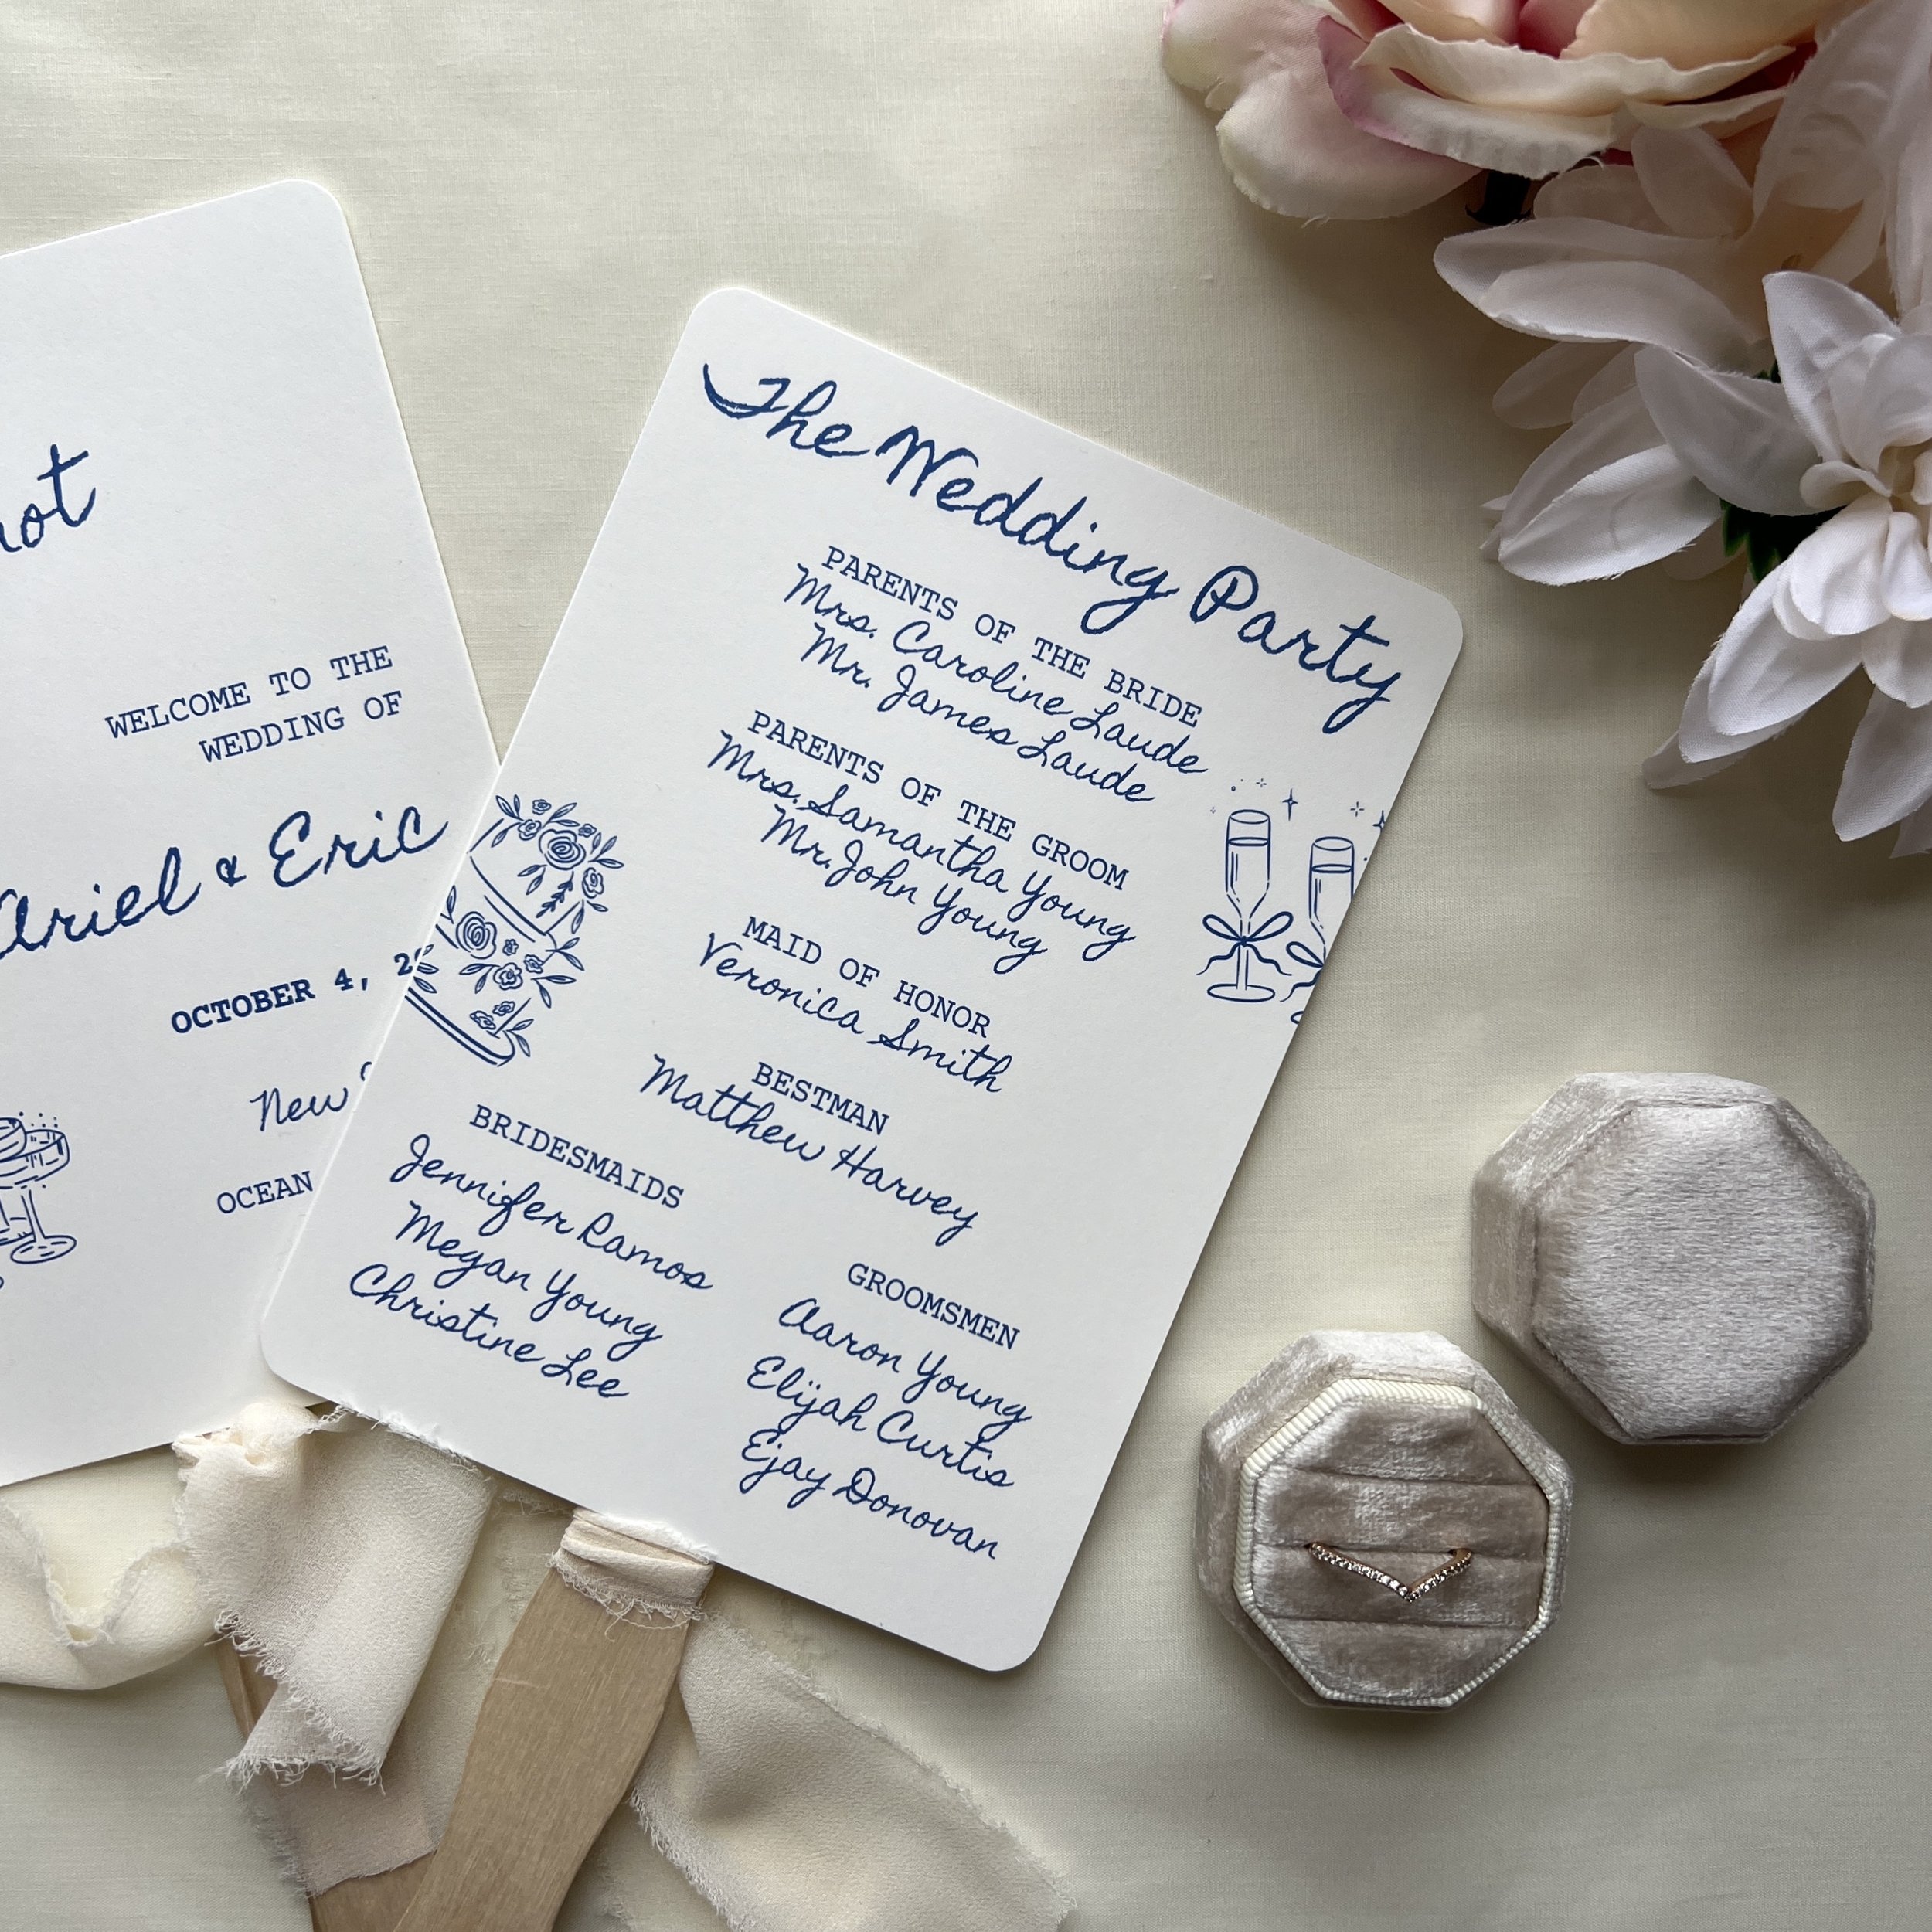 WELCOME TO THE
WEDDING OF
Ariel & Eric
OCTOBER 4,
New
OCEAN
The Wedding Party
PARENTS OF THE BRIDE
Mrs. Caroline Laude
Mr. James Laude
PARENTS OF THE GROOM
Mrs. Samantha Young
Mr. John Young
MAID OF HONOR
Veronica Smith
BESTMAN
Matthew Harvey
BRIDESMAIDS
Jennifer Ramos
Megan Young
Christine Lee
GROOMSMEN
Aaron Young
Elijah Curtis
Ejay Donovan